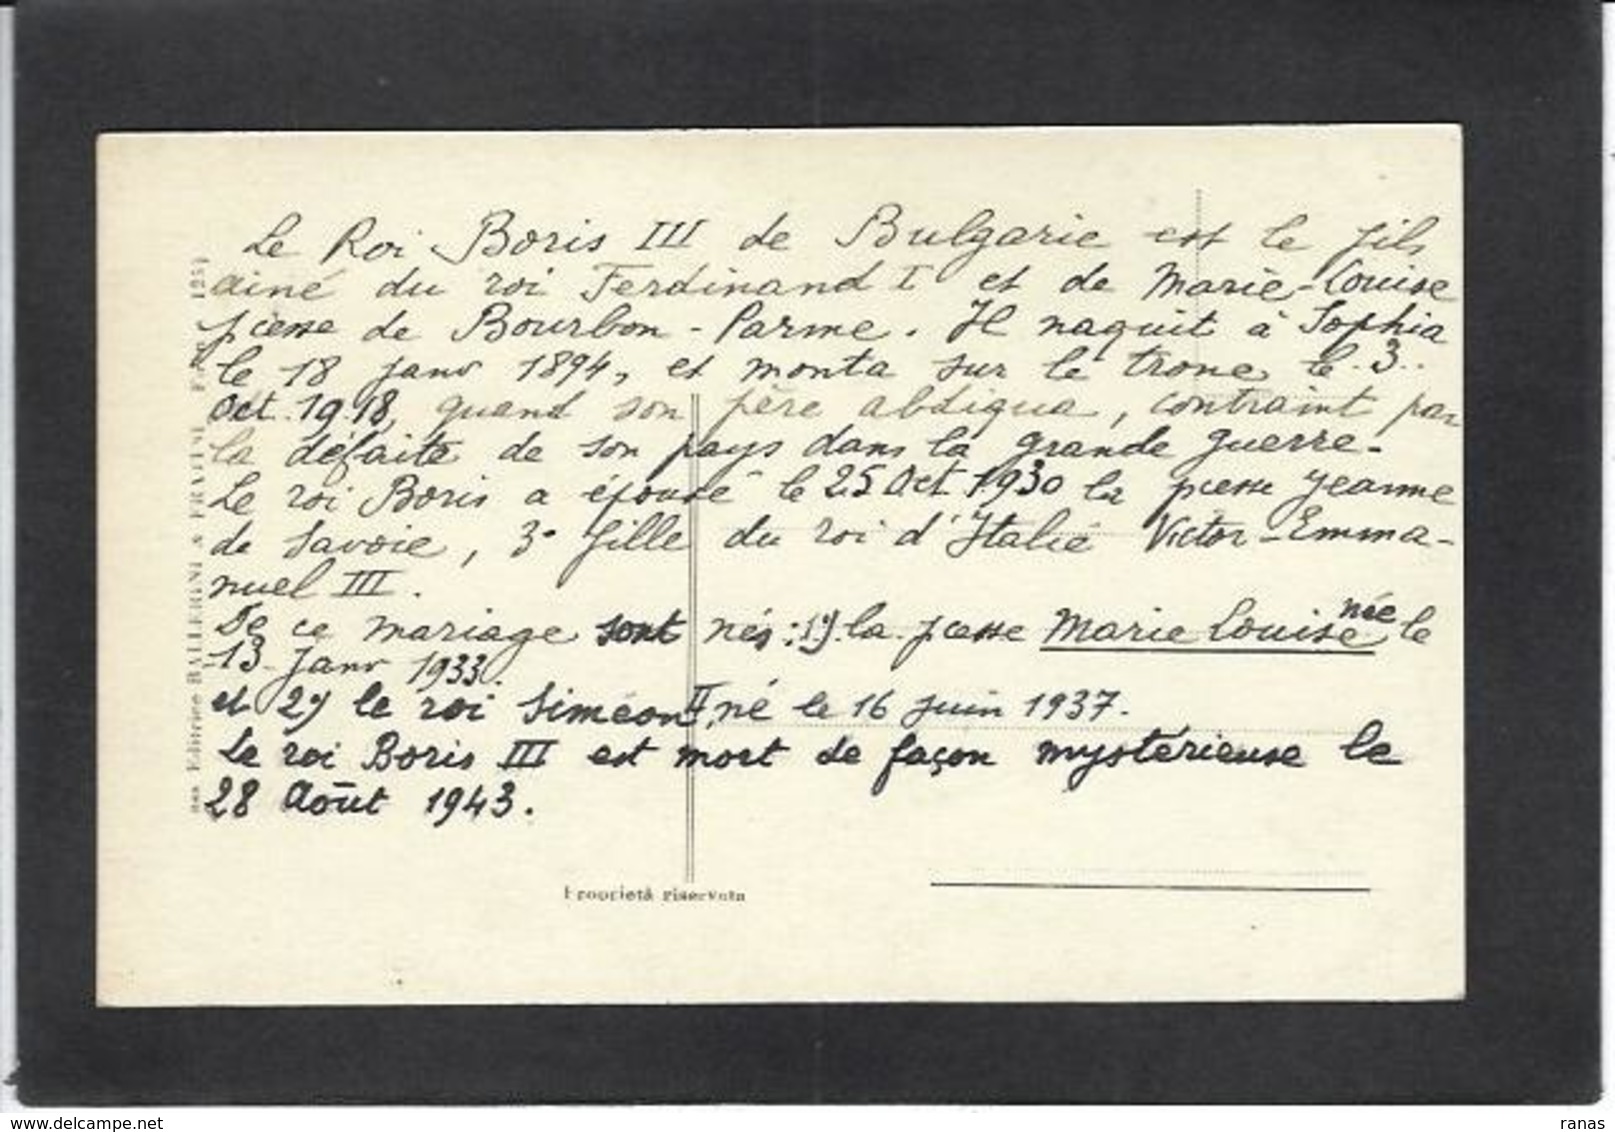 Le Roi Boris III de Bulgarie est le fils
ainé du roi Ferdinand I et de Marie-Louise
pcesse de Bourbon-Parme. Il naquit à Sophia
le 18 janv 1894, et monta sur le trone le 3
Oct. 1918, quand son père abdiqua, contraint par
la défaite de son pays dans la grande guerre.
Le roi Boris a épousé le 25 Oct 1930 la pcesse Jeanne
de Savoie, 3e fille du roi d'Italie Victor-Emma-
nuel III.
De ce mariage sont nés: 1) la pcesse Marie Louise née le
13 Janv 1933.
et 2) le roi Siméon II, né le 16 juin 1937.
Le roi Boris III est mort de façon mystérieuse le
28 Août 1943.
Proprietà riservata
Editrice BALLERINI & FRATINI
www.delcampe.net
ranas